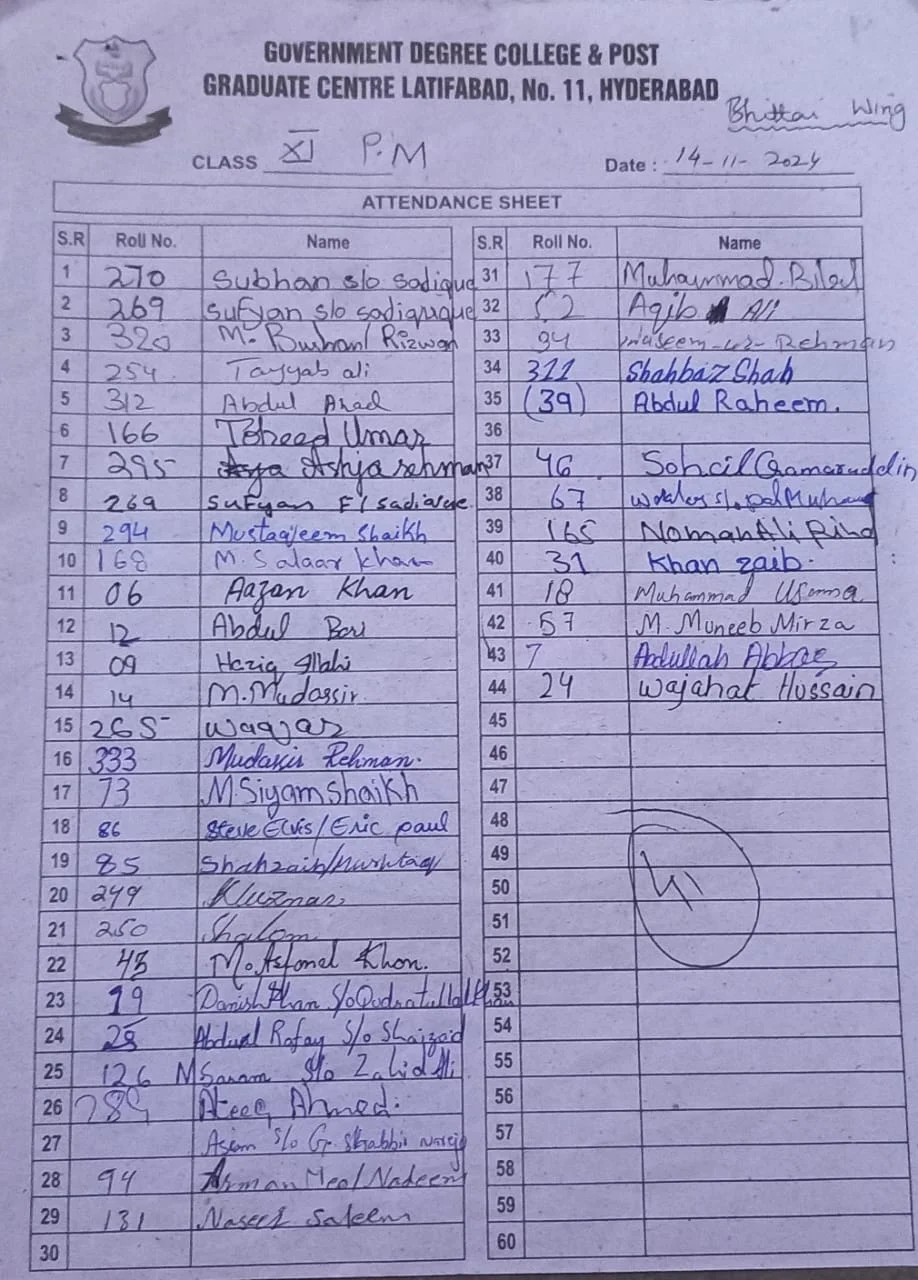 GOVERNMENT DEGREE COLLEGE & POST
GRADUATE CENTRE LATIFABAD, No. 11, HYDERABAD
Bhittai Wing
CLASS XI P.M Date : 14-11-2024
ATTENDANCE SHEET
S.R Roll No. Name
1 270 Subhan s/o sadique
2 269 Sufyan s/o sadiquque
3 320 M. Burhan/ Rizwan
4 254 Tayyab ali
5 312 Abdul Ahad
6 166 Toheed Umar
7 295 Ashja rehman
8 269 Sufyan F/
9 294 Mustaqeem Shaikh
10 168 M. Salaar khan
11 06 Aazan Khan
12 12 Abdul Bari
13 09 Haziq Illahi
14 14 M. Mudassir.
15 265 Waqar
16 333 Mudasir Rehman.
17 73 M. Siyam Shaikh
18 86 Steve Elvis/Eric paul
19 85 Shahzaib/Mushtaq
20 249
21 250 Shalom
22 43 M. Khan.
23 19 Danish Khan s/o Qudratullah Khan
24 25 Abdual Rafay s/o
25 126 M S/o Zahid Ali
26 289 Ateeq Ahmed.
27 s/o G. Shabbir
28 94 Arman Nadeem
29 131 Naseer Saleem
30
S.R Roll No. Name
31 177 Muhammad. Bilal
32 52 Aqib Ali
33 94 Waseem-ur-Rehman
34 311 Shahbaz Shah
35 (39) Abdul Raheem.
36
37 46 Sohail Qamaruddin
38 67 s/o
39 165 Noman Ali Rind
40 31 Khan zaib.
41 18 Muhammad Usama
42 57 M. Muneeb Mirza
43 7 Abdullah Abbas
44 24 Wajahat Hussain
45
46
47
48
49
50
51
52
53
54
55
56
57
58
59
60
41